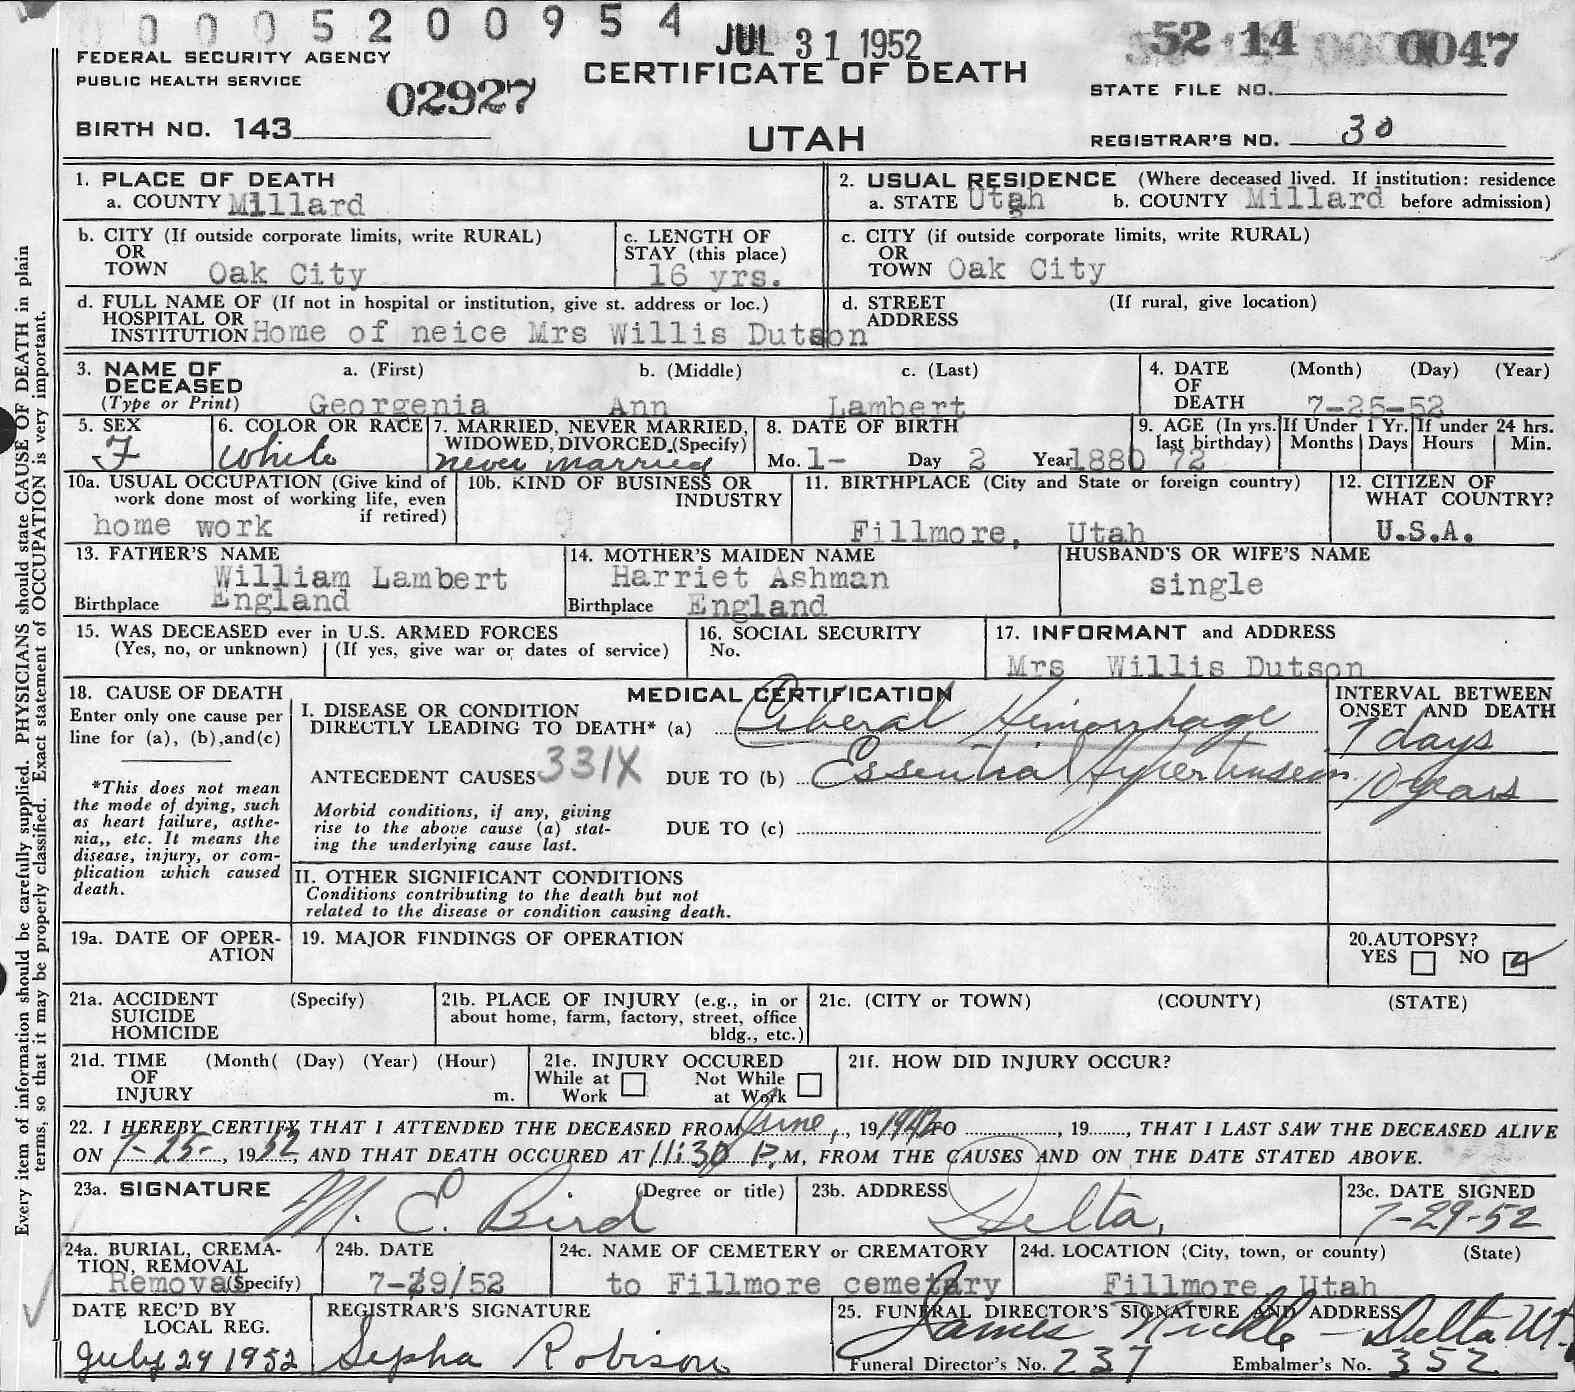 0005200954
JUL 31 1952
52 14 0047
FEDERAL SECURITY AGENCY
PUBLIC HEALTH SERVICE
02927
CERTIFICATE OF DEATH
STATE FILE NO.
BIRTH NO. 143
UTAH
REGISTRAR'S NO. 30
1. PLACE OF DEATH
a. COUNTY Millard
2. USUAL RESIDENCE (Where deceased lived. If institution: residence
a. STATE Utah b. COUNTY Millard before admission)
b. CITY (If outside corporate limits, write RURAL)
OR
TOWN Oak City
c. LENGTH OF
STAY (this place)
16 yrs.
c. CITY (if outside corporate limits, write RURAL)
OR
TOWN Oak City
d. FULL NAME OF (If not in hospital or institution, give st. address or loc.)
HOSPITAL OR
INSTITUTION Home of neice Mrs Willis Dutson
d. STREET (If rural, give location)
ADDRESS
3. NAME OF a. (First) b. (Middle) c. (Last)
DECEASED
(Type or Print) Georgenia Ann Lambert
4. DATE (Month) (Day) (Year)
OF
DEATH 7-25-52
5. SEX
F
6. COLOR OR RACE
White
7. MARRIED, NEVER MARRIED,
WIDOWED, DIVORCED (Specify)
never married
8. DATE OF BIRTH
Mo. 1- Day 2 Year 1880
9. AGE (In yrs.
last birthday)
72
If Under 1 Yr.
Months Days
If under 24 hrs.
Hours Min.
10a. USUAL OCCUPATION (Give kind of
work done most of working life, even
if retired)
home work
10b. KIND OF BUSINESS OR
INDUSTRY
11. BIRTHPLACE (City and State or foreign country)
Fillmore, Utah
12. CITIZEN OF
WHAT COUNTRY?
U.S.A.
13. FATHER'S NAME
William Lambert
Birthplace England
14. MOTHER'S MAIDEN NAME
Harriet Ashman
Birthplace England
HUSBAND'S OR WIFE'S NAME
single
15. WAS DECEASED ever in U.S. ARMED FORCES
(Yes, no, or unknown) (If yes, give war or dates of service)
16. SOCIAL SECURITY
No.
17. INFORMANT and ADDRESS
Mrs Willis Dutson
18. CAUSE OF DEATH
Enter only one cause per
line for (a), (b),and(c)
*This does not mean
the mode of dying, such
as heart failure, asthe-
nia,, etc. It means the
disease, injury, or com-
plication which caused
death.
MEDICAL CERTIFICATION
I. DISEASE OR CONDITION
DIRECTLY LEADING TO DEATH* (a) Ceberal Hemorrhage
ANTECEDENT CAUSES 331X DUE TO (b) Essential Hypertension
Morbid conditions, if any, giving
rise to the above cause (a) stat-
ing the underlying cause last.
DUE TO (c)
INTERVAL BETWEEN
ONSET AND DEATH
7 days
10 years
II. OTHER SIGNIFICANT CONDITIONS
Conditions contributing to the death but not
related to the disease or condition causing death.
19a. DATE OF OPER-
ATION
19. MAJOR FINDINGS OF OPERATION
20.AUTOPSY?
YES NO
21a. ACCIDENT (Specify)
SUICIDE
HOMICIDE
21b. PLACE OF INJURY (e.g., in or
about home, farm, factory, street, office
bldg., etc.)
21c. (CITY or TOWN) (COUNTY) (STATE)
21d. TIME (Month( (Day) (Year) (Hour)
OF
INJURY m.
21e. INJURY OCCURED
While at Not While
Work at Work
21f. HOW DID INJURY OCCUR?
22. I HEREBY CERTIFY THAT I ATTENDED THE DECEASED FROM June, , 19 1942 TO , 19 , THAT I LAST SAW THE DECEASED ALIVE
ON 7-25-, 1952, AND THAT DEATH OCCURED AT 11:30 P.M, FROM THE CAUSES AND ON THE DATE STATED ABOVE.
23a. SIGNATURE (Degree or title)
M. E. Bird
23b. ADDRESS
Delta,
23c. DATE SIGNED
7-29-52
24a. BURIAL, CREMA-
TION, REMOVAL
Removal (Specify)
24b. DATE
7-29/52
24c. NAME OF CEMETERY or CREMATORY
to Fillmore cemetary
24d. LOCATION (City, town, or county) (State)
Fillmore Utah
DATE REC'D BY
LOCAL REG.
July 29 1952
REGISTRAR'S SIGNATURE
Sepha Robison
25. FUNERAL DIRECTOR'S SIGNATURE AND ADDRESS
James Nickle - Delta Ut.
Funeral Director's No. 237 Embalmer's No. 352
Every item of information should be carefully supplied. PHYSICIANS should state CAUSE OF DEATH in plain
terms, so that it may be properly classified. Exact statement of OCCUPATION is very important.